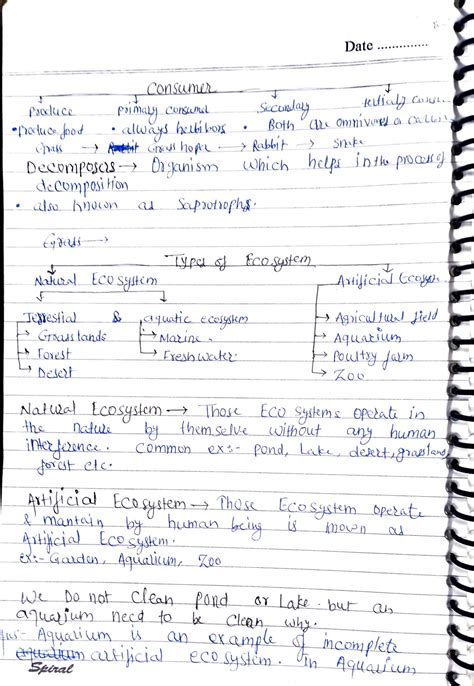 Date ..............
Consumer
Produce primary consumal Secondary tertialy
• Produce food • always herbivors • Both are omnivores or
Grass → Grass hoper → Rabbit → Snake
Decomposers → Organism which helps in the process of
decomposition
• also known as Saprotrophs.
Grass →
Types of Ecosystem
Natural Ecosystem Artificial
Terrestial & aquatic ecosystem → Agricultural field
→ Grasslands → Marine. → Aquarium
→ Forest → Freshwater. → Poultry farm
→ Desert → Zoo
Natural Ecosystem → Those Eco systems operate in
the nature by themselve without any human
interference. Common exs:- pond, Lake, desert, grassland,
forest etc.
Artificial Ecosystem → Those Ecosystem operate
& mantain by human being is known as
Artificial Ecosystem.
ex:- Garden, Aquarium, Zoo
We Do not Clean pond or Lake. but an
aquarium need to be Clean why.
Aquarium is an example of incomplete
artificial ecosystem. in Aquarium
Spiral